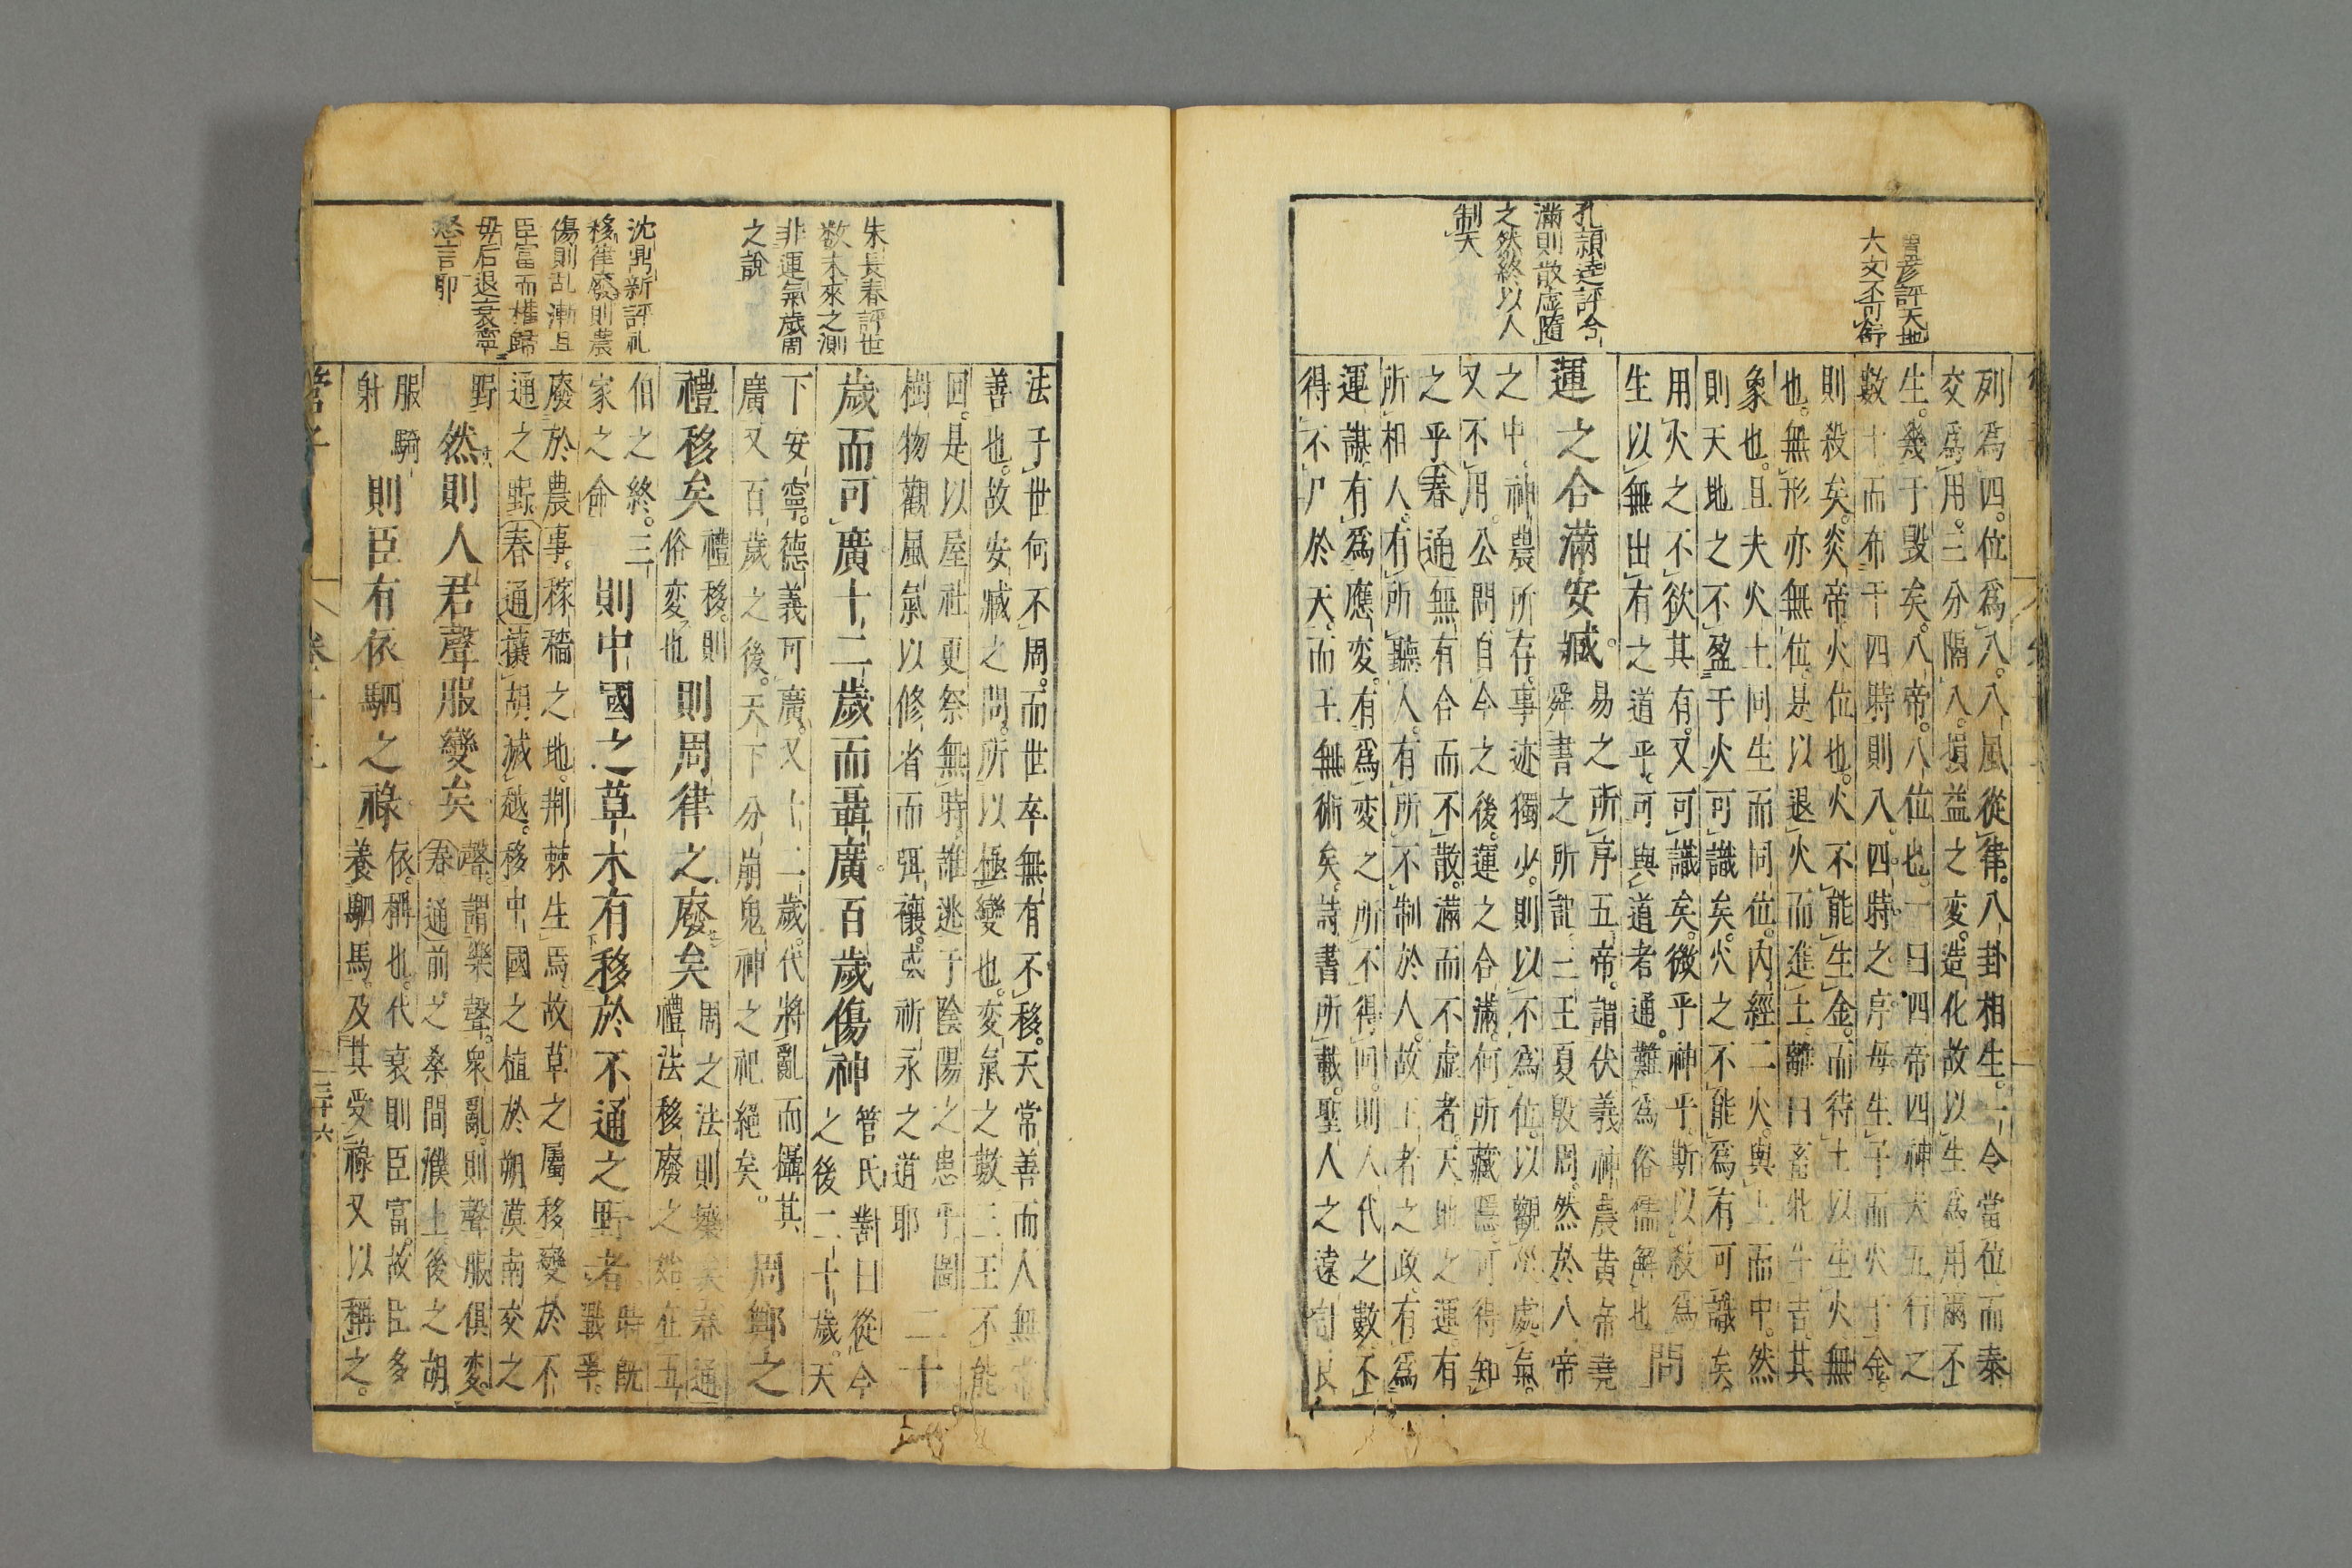 曽彦評天地
大文不可術
孔頴逵評合
滿則散虛隨
之然終以人
制天
列爲四位爲八八風從律八卦相生一令當位而泰
交爲用三分隔八損益之变造化故以生爲用爾不
生幾于毁矣八帝八位也一曰四帝四神大五行之
數十而布干四時則八四時之序母生子而火于金
則殺矣炎帝火位也火不能生金而待土以生火無
也無形亦無位是以退火而進土離曰畜牝牛吉其
象也且夫火土同生而同位內經二火與土而中然
則天地之不盈于火可識矣火之不能爲有可識矣
用火之不欲其有又可識矣微乎神乎斯以殺爲
生以無出有之道乎可與道者通難爲俗儒解也問
運之合滿安臧
易之所序五帝謂伏義神農黄帝堯
舜書之所記三王夏殷周然於八帝
之中神農所存事迹獨少則以不爲位以觀災處氣
又不用公問自今之後運之合滿何所藏隱可得知
之乎春通無有合而不散滿而不虛者天地之運有
所相人有所聽人有所不制於人故王者之政有爲
運謀有爲應变有爲变之所不得同則人代之數不
得不尸於天而王無術矣詩書所載聖人之遠
朱長春評世
数未來之測
非運氣歲周
之說
沈鼎新評礼
移律廢則農
傷則乱漸且
臣富而權歸
毋后退衰寧
忍言耶
法于世何不周而世卒無有不移天常善而人無
善也故安臧之問所以極變也变氣之數三王不能
回是以屋社更祭無時誰逃于陰陽之患乎圖二十
樹物觀風氣以修省而弭禳或祈永之道耶
歲而可廣十二歲而聶廣百歲傷神
管氏對曰從今
之後二十歲天
下安寧德義可廣又十二歲代將亂而攝其
廣又百歲之後天下分崩鬼神之祀絕矣
周鄭之
禮移矣
禮移則
俗変也
則周律之廢矣
周之法則藥矣春通
禮法移廢之始在五
伯之終三
家之命
則中國之草木有移於不通之野者
時既
戰爭
廢於農事稼穡之地荆棘生焉故草之屬移變於不
通之野春通攘胡滅越移中國之植於朔漠南交之
野
然則人君聲服變矣
聲謂樂聲衆亂則聲服俱変
春通前之桑間濮上後之胡
服騎
射
則臣有依駟之祿
依稱也代衰則臣富故臣多
養駟馬及其受祿又以稱之
管子
三十六